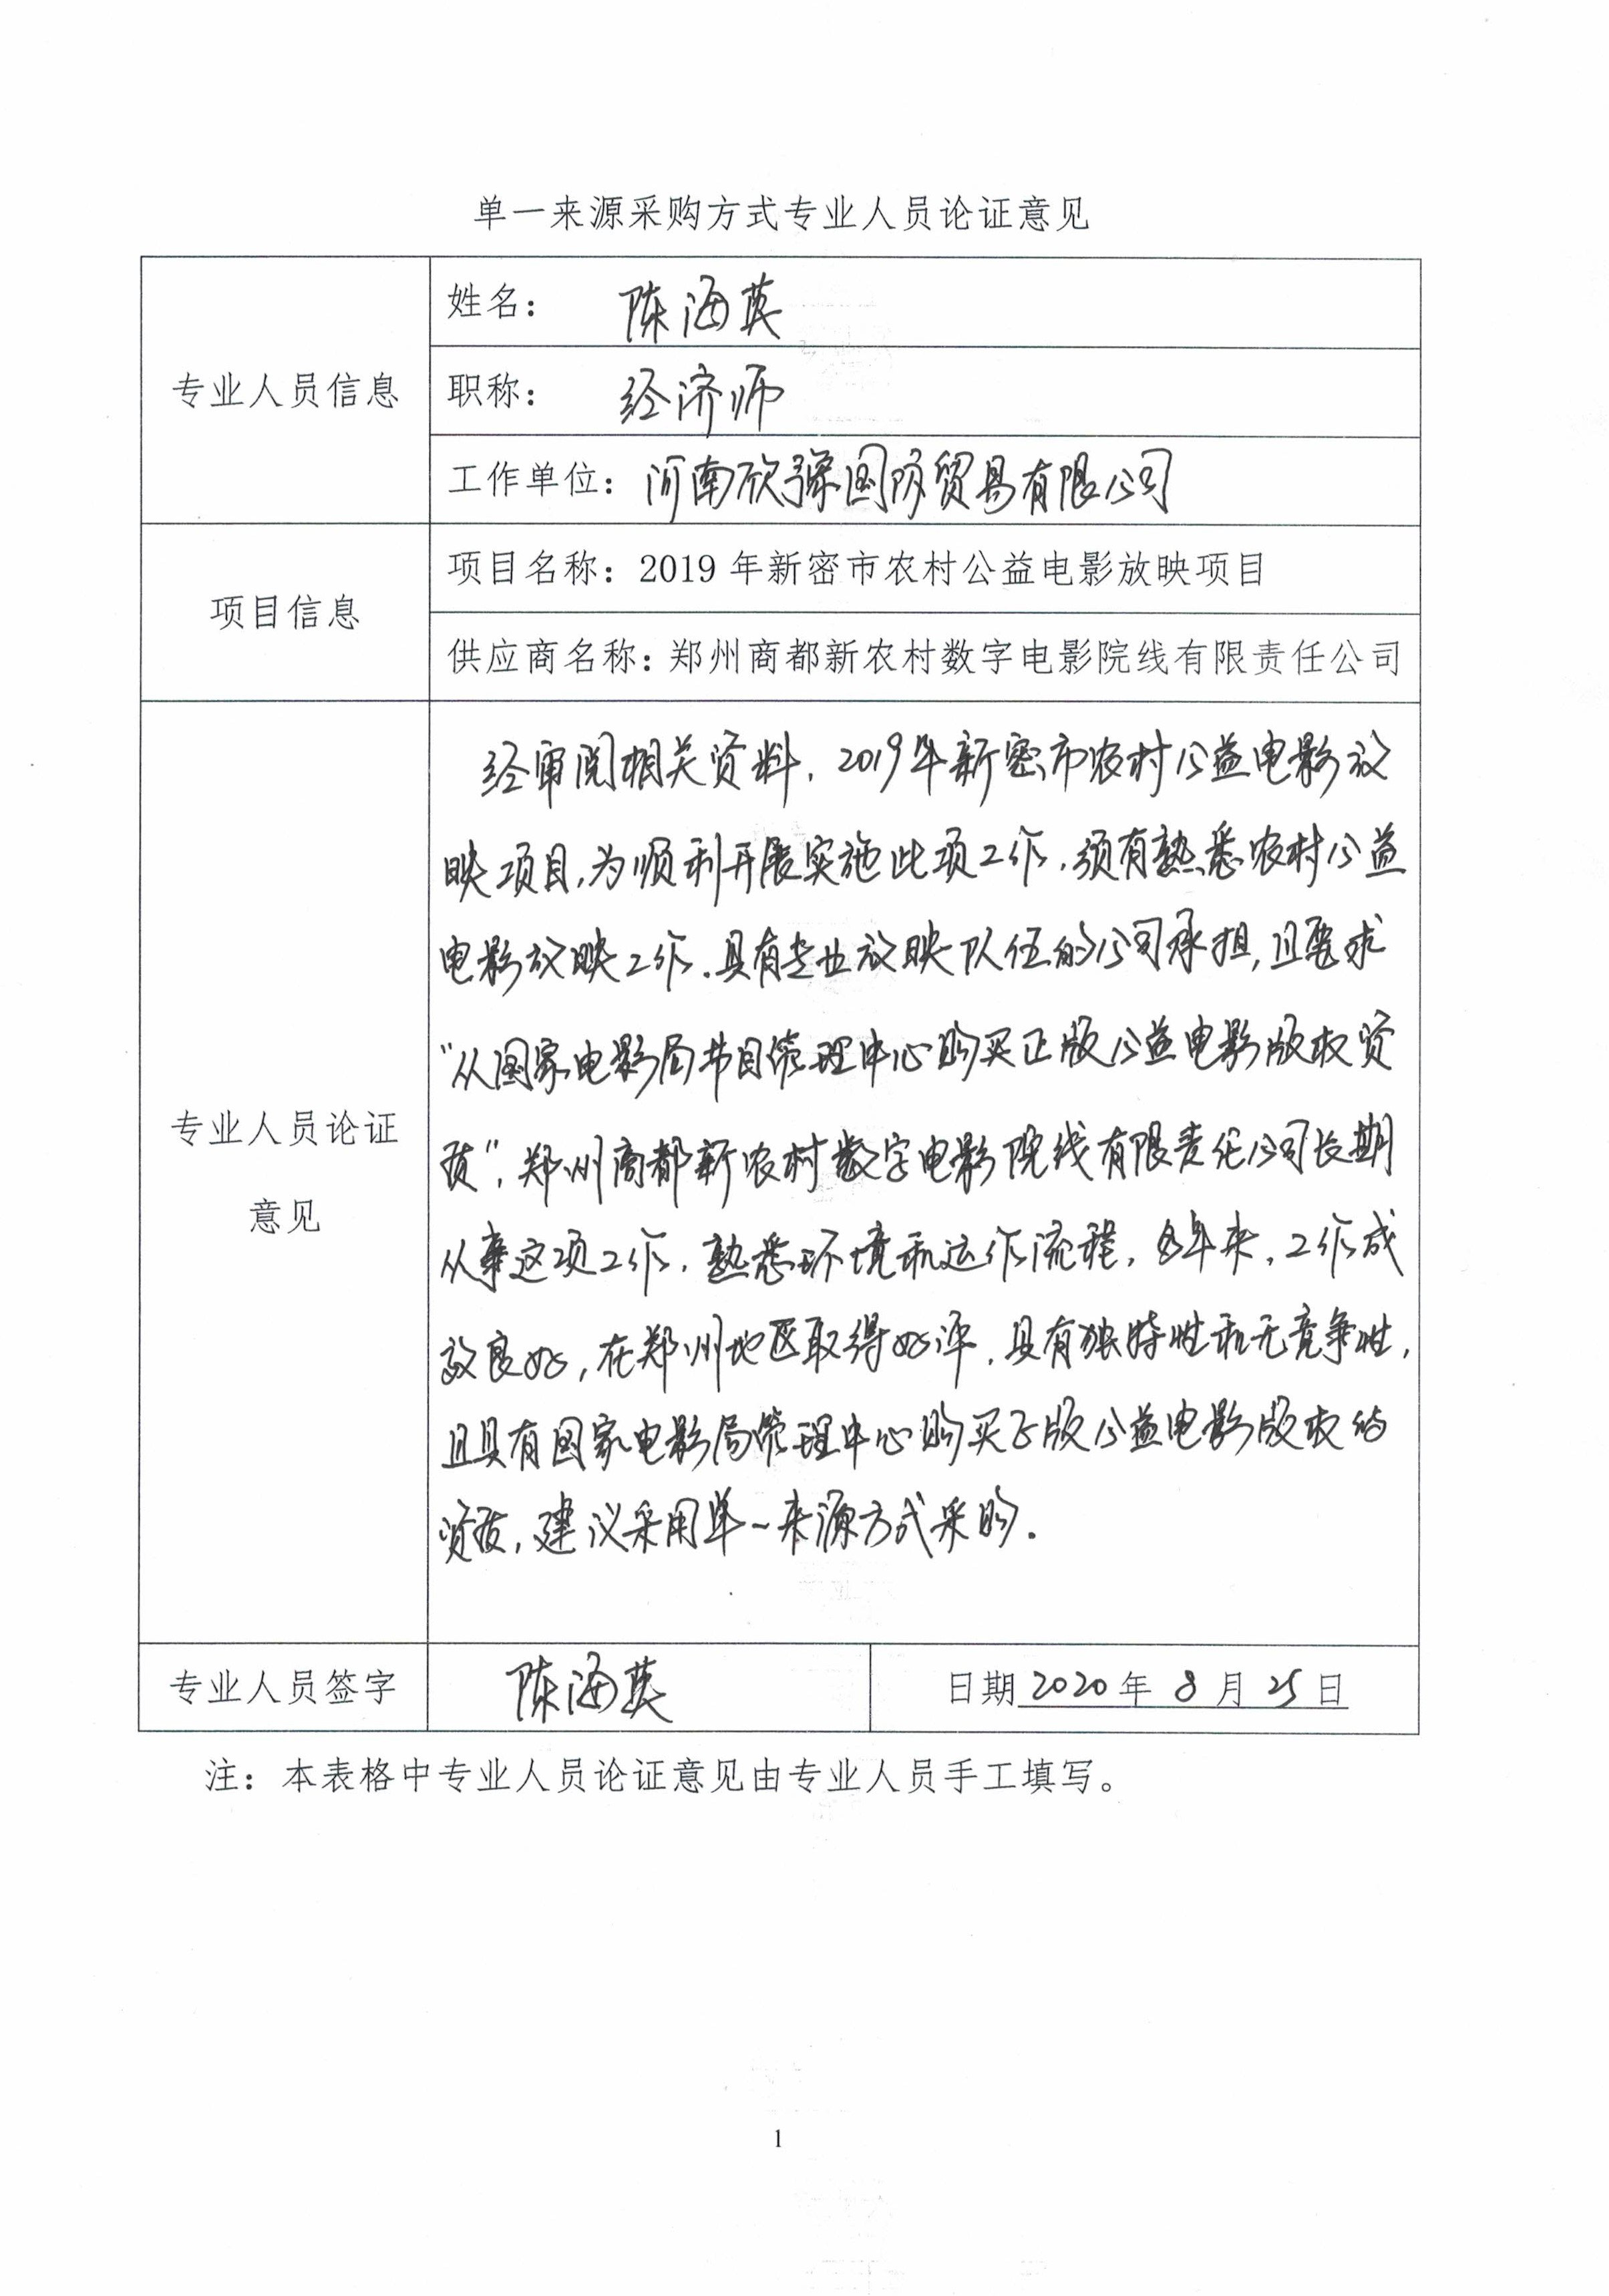 单一来源采购方式专业人员论证意见
专业人员信息
姓名： 陈海英
职称： 经济师
工作单位：河南欣豫国际贸易有限公司
项目信息
项目名称：2019年新密市农村公益电影放映项目
供应商名称：郑州商都新农村数字电影院线有限责任公司
专业人员论证
意见
经审阅相关资料，2019年新密市农村公益电影放
映项目，为顺利开展实施此项工作，须有熟悉农村公益
电影放映工作，具有专业放映队伍的公司承担，且要求
“从国家电影局节目管理中心购买正版公益电影版权资
质”，郑州商都新农村数字电影院线有限责任公司长期
从事这项工作，熟悉环境和运作流程，多年来，工作成
效良好，在郑州地区取得好评，具有独特性和无竞争性，
且具有国家电影局管理中心购买正版公益电影版权的
资质，建议采用单一来源方式采购．
专业人员签字
陈海英
日期2020年8月25日
注：本表格中专业人员论证意见由专业人员手工填写。
1